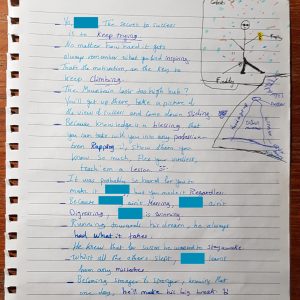 The Secret to success
is to Keep trying.
No matter how hard it gets
always remember what got you inspiring
That's the motivation, an the key to
Keep Climbing.
The Mountain looks too high huh?
You'll get up there, take a picture of
the view of success and come down sliding
Because knowledge is a blessing, that
you can take with you into any profession
Even Rapping, show them you
know so much, flex your wordings,
teach em a lesson
It was probably so hard for you to
make it but you made it Regardless
Because ain't Mourning, ain't
Digressing, is winning
Running towards his dream, he always
had what it takes.
He knew that for success he would stay awake
Whilst all the others slept, learns
from any mistakes
Becoming stronger & stronger, knowing that
one day, he'll make his big break